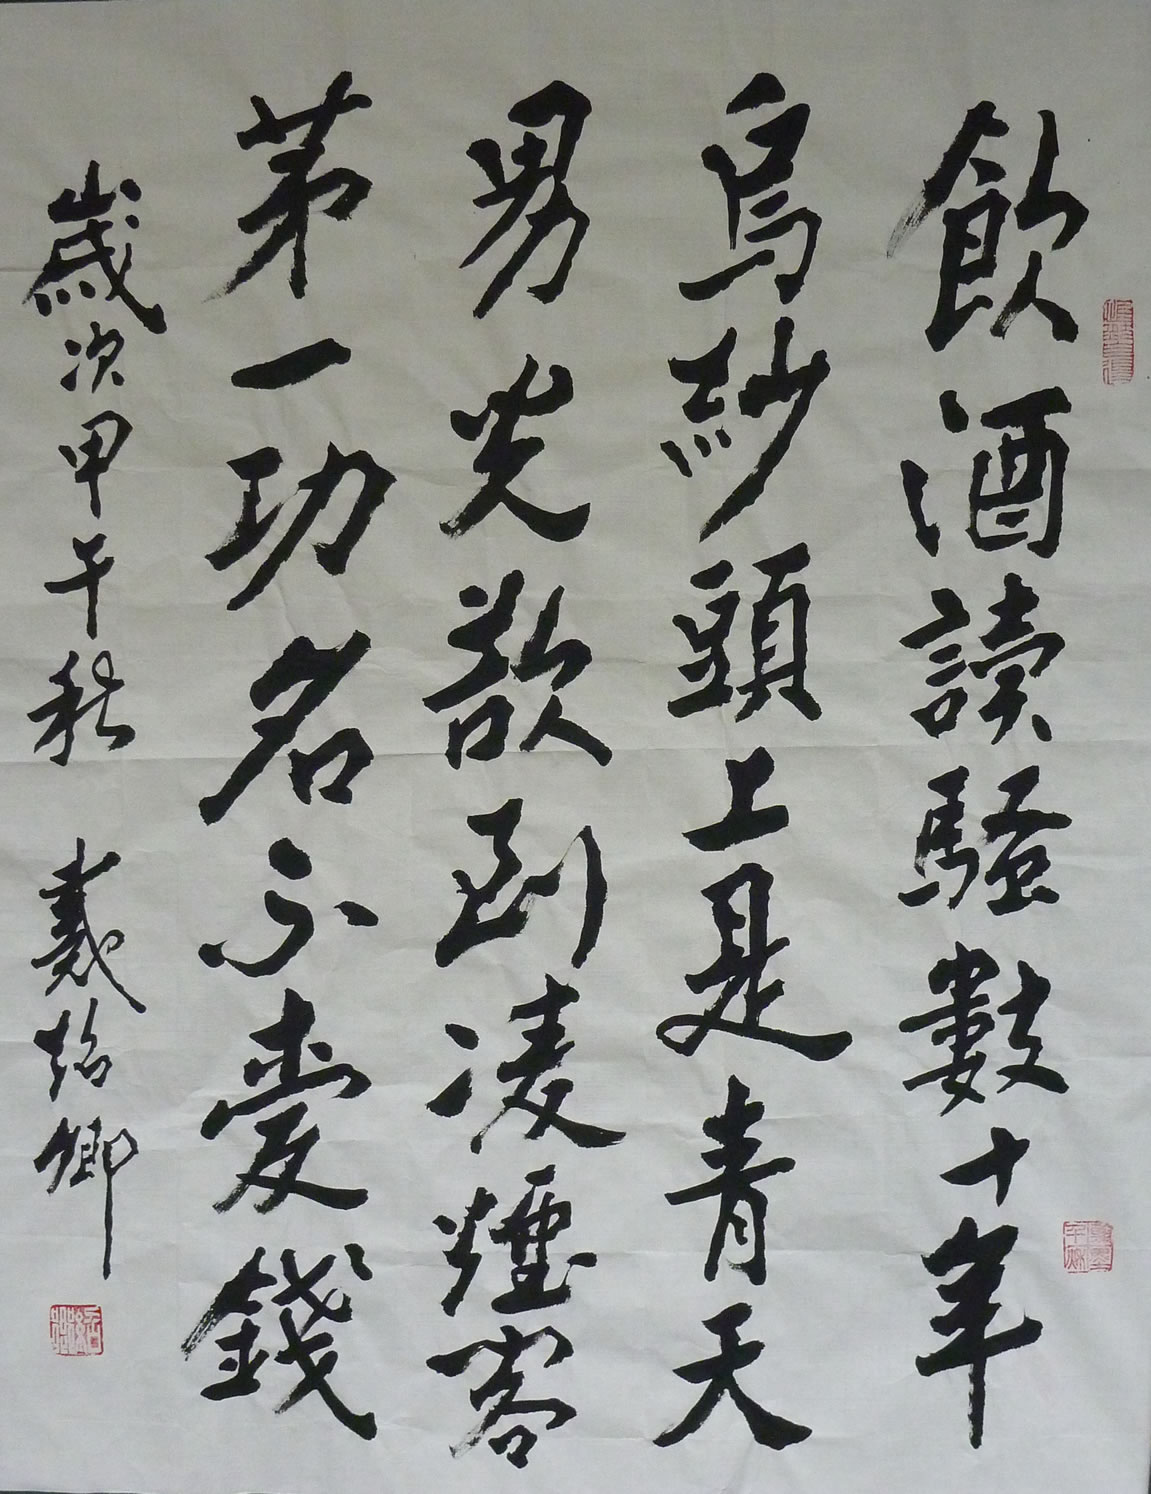 飲酒讀騷數十年
烏紗頭上是青天
男兒欲到凌煙客
苐一功名不愛錢
歲次甲午秋 戴紹卿